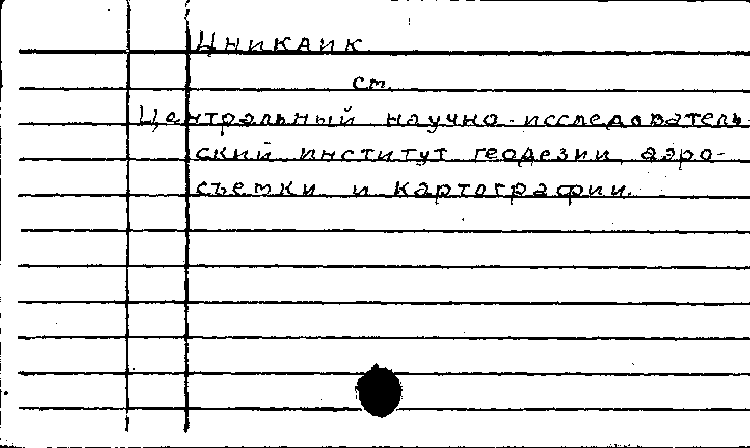 ЦНИКАИК
см.
Центральный научно-исследователь-
ский институт геодезии, аэро-
съемки и картографии.